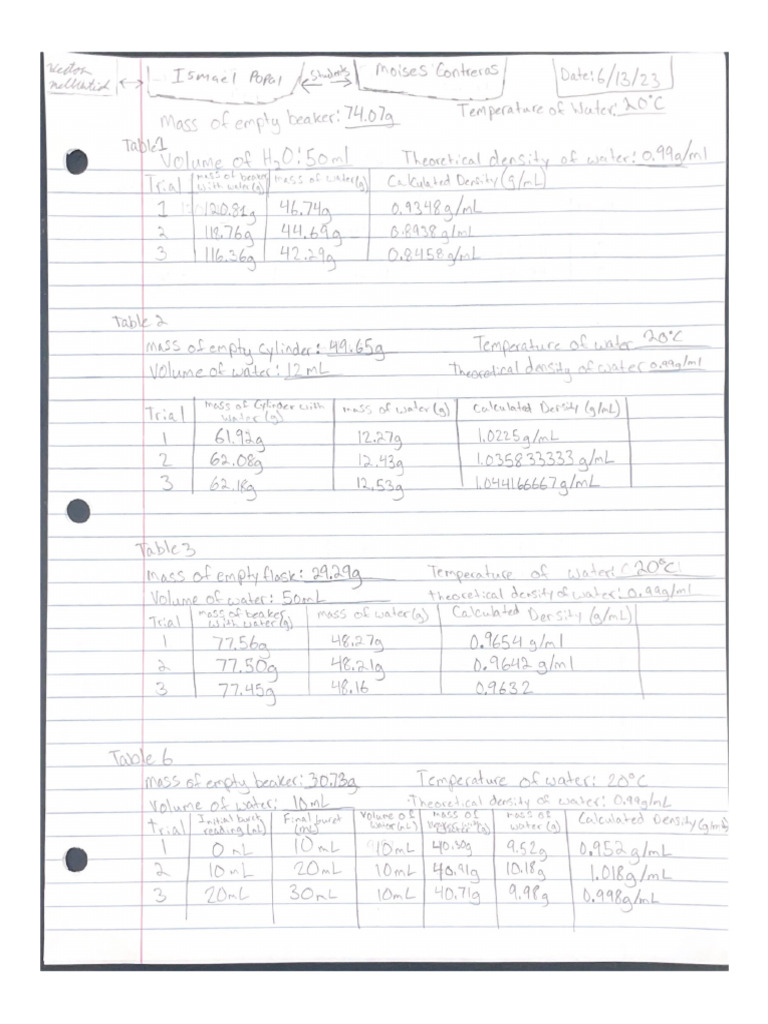 Ismael Popal Students Moises Contreras Date: 6/13/23
Mass of empty beaker: 74.07g Temperature of Water: 20°C
Table 1
Volume of H₂O: 50ml Theoretical density of water: 0.99g/ml
Trial mass of beaker with water (g) mass of water (g) Calculated Density (g/mL)
1 120.81g 46.74g 0.9348g/mL
2 118.76g 44.69g 0.8938g/mL
3 116.36g 42.29g 0.8458g/mL
Table 2
mass of empty cylinder: 49.65g Temperature of water 20°C
Volume of water: 12mL Theoretical density of water 0.99g/ml
Trial mass of Cylinder with water (g) mass of water (g) Calculated Density (g/mL)
1 61.92g 12.27g 1.0225g/mL
2 62.08g 12.43g 1.035833333g/mL
3 62.18g 12.53g 1.044166667g/mL
Table 3
mass of empty flask: 29.29g Temperature of water: 20°C
Volume of water: 50mL theoretical density of water: 0.99g/ml
Trial mass of beaker with water (g) mass of water (g) Calculated Density (g/mL)
1 77.56g 48.27g 0.9654 g/ml
2 77.50g 48.21g 0.9642 g/ml
3 77.45g 48.16 0.9632
Table 6
mass of empty beaker: 30.73g Temperature of water: 20°C
Volume of water: 10mL Theoretical density of water: 0.99g/mL
Trial Initial buret reading (mL) Final buret (mL) Volume of water (mL) mass of water (g) mass of water (g) Calculated Density (g/mL)
1 0mL 10mL 10mL 40.30g 9.52g 0.952g/mL
2 10mL 20mL 10mL 40.91g 10.18g 1.018g/mL
3 20mL 30mL 10mL 40.71g 9.98g 0.998g/mL